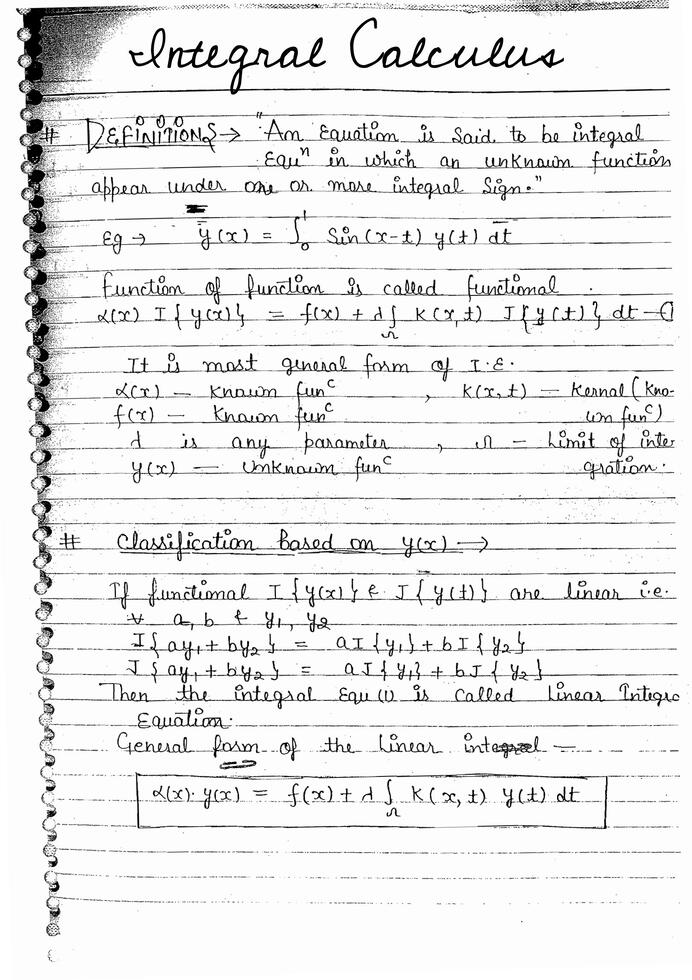 Integral Calculus
# DEFINITIONS → "An Equation is Said to be integral
Equⁿ in which an unknown function
appear under one or more integral Sign."
Eg → y(x) = ∫₀¹ Sin(x-t) y(t) dt
Function of function is called functional.
α(x) I{y(x)} = f(x) + λ∫_Ω K(x,t) J{y(t)} dt —①
It is most general form of I.E.
α(x) — Known funᶜ , K(x,t) — Kernal (Kno-
f(x) — Known funᶜ wn funᶜ)
λ is any parameter , Ω — Limit of inte
y(x) — Unknown funᶜ gration.
# Classification based on y(x) →
If functional I{y(x)} & J{y(t)} are linear i.e.
∀ a, b & y₁, y₂
I{ay₁ + by₂} = aI{y₁} + bI{y₂}
J{ay₁ + by₂} = aJ{y₁} + bJ{y₂}
Then the integral Equ (1) is called Linear Integra
Equation.
General form of the Linear integral —
α(x)·y(x) = f(x) + λ∫_Ω K(x,t) y(t) dt